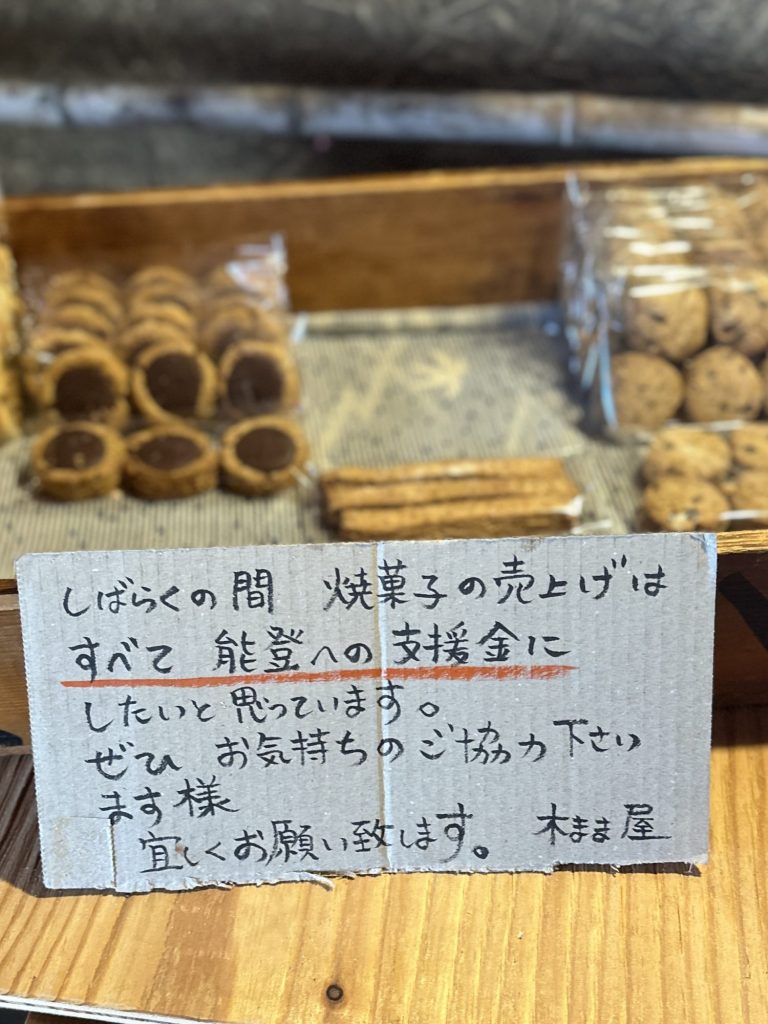 しばらくの間 焼菓子の売上げは
すべて 能登への支援金に
したいと思っています。
ぜひ お気持ちのご協力下さい
ます様
宜しくお願い致します。 木まま屋